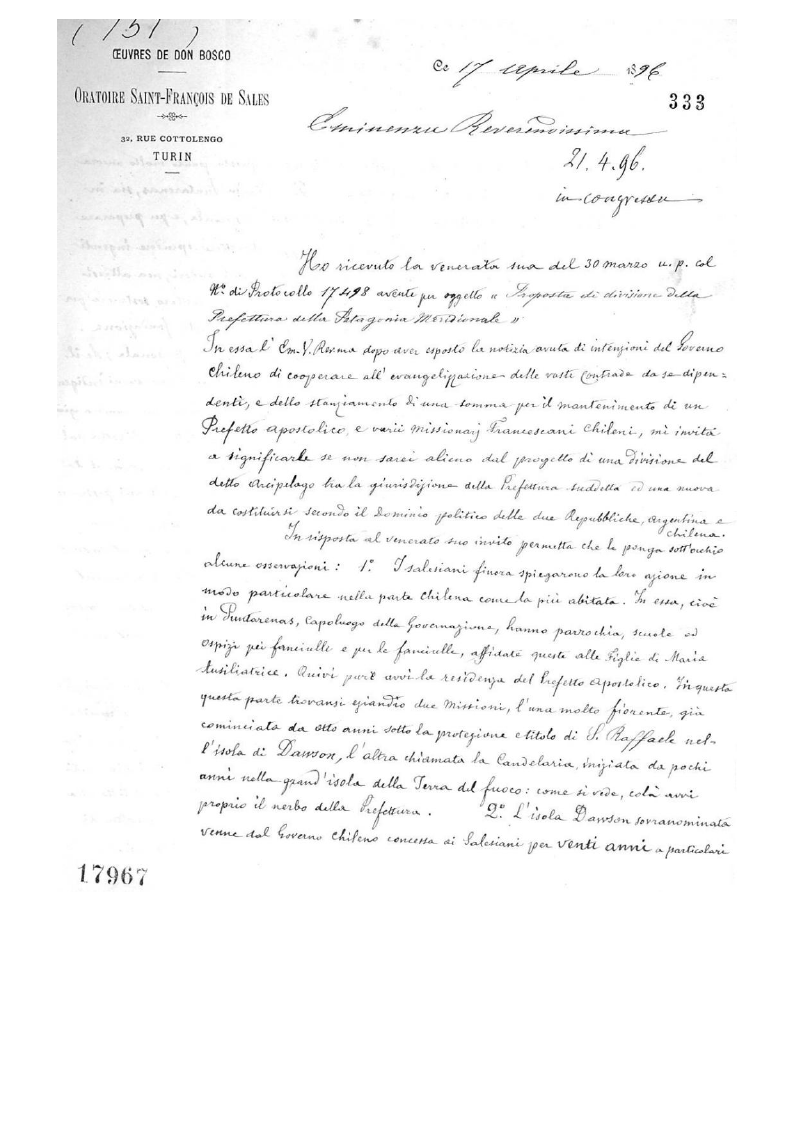 (151)
ŒUVRES DE DON BOSCO
ORATOIRE SAINT-FRANÇOIS DE SALES
32, RUE COTTOLENGO
TURIN
Ce 17 Aprile 1896
333
Eminenza Reverendissima
21.4.96.
in congressu
Ho ricevuto la venerata sua del 30 marzo u. p. col
Nº di Protocollo 17498 avente per oggetto « Proposta di divisione della
Prefettura della Patagonia Meridionale »
In essa l'Em. V. Rev.ma dopo aver esposto la notizia avuta di intenzioni del Governo
Chileno di cooperare all'evangelizzazione delle vaste contrade da se dipen=
denti, e dello stanziamento di una somma per il mantenimento di un
Prefetto apostolico, e varii missionarj Francescani Chileni, mi invita
a significarle se non sarei alieno dal progetto di una divisione del
detto Arcipelago tra la giurisdizione della Prefettura suddetta ed una nuova
da costituirsi secondo il Dominio politico delle due Repubbliche, Argentina e
Chilena.
In risposta al venerato suo invito permetta che le ponga sott'occhio
alcune osservazioni: 1º. I salesiani finora spiegarono la loro azione in
modo particolare nella parte Chilena come la più abitata. In essa, cioè
in Puntarenas, Capoluogo della Governazione, hanno parrochia, scuole ed
ospizi pei fanciulli e per le fanciulle, affidate queste alle Figlie di Maria
Ausiliatrice. Quivi pure avvi la residenza del Prefetto Apostolico. In questa
questa parte trovansi eziandio due Missioni, l'una molto fiorente, già
cominciata da otto anni sotto la protezione e titolo di S. Raffaele nel=
l'isola di Dawson, l'altra chiamata la Candelaria, iniziata da pochi
anni nella grand'isola della Terra del fuoco: come si vede, colà avvi
proprio il nerbo della Prefettura. 2º. L'isola Dawson sovranominata
venne dal Governo Chileno concessa ai Salesiani per venti anni a particolari
17967